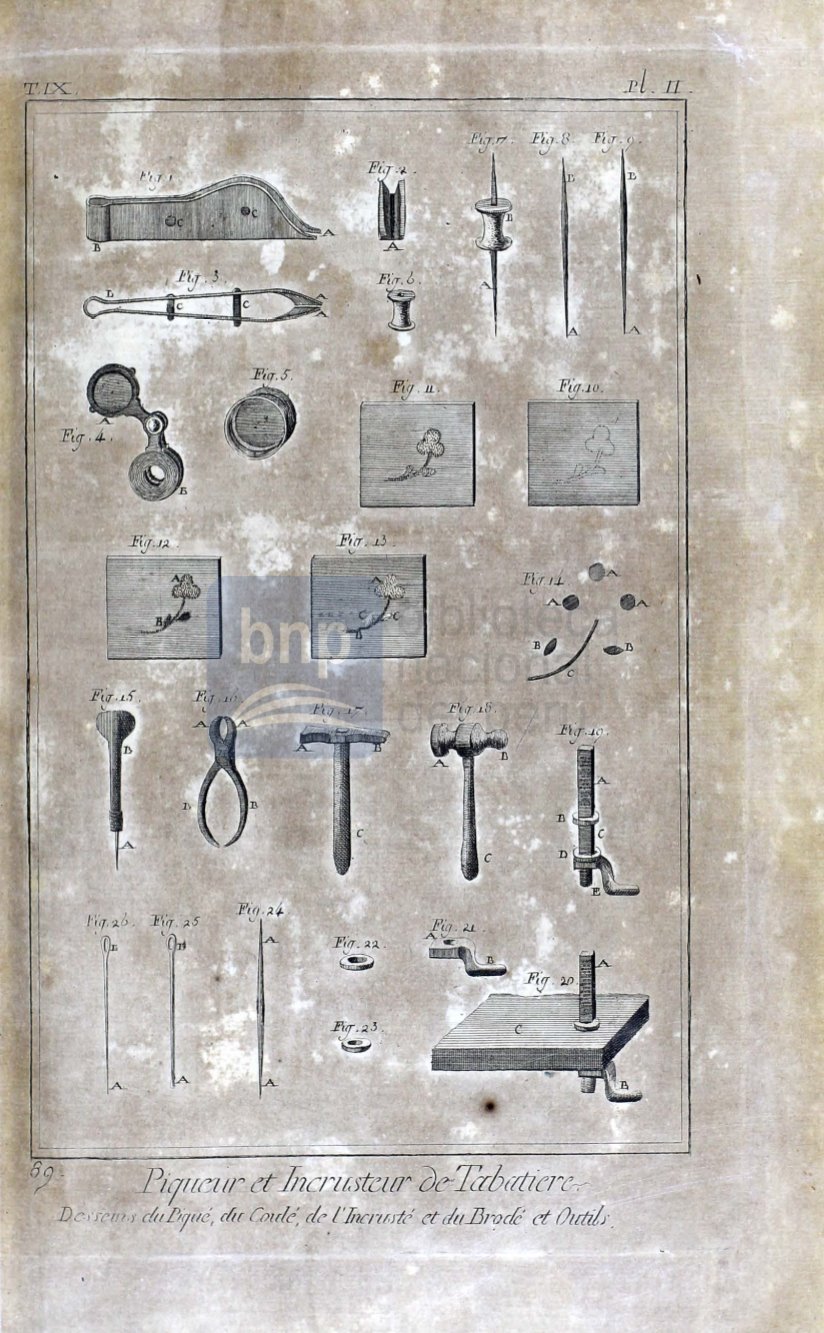 T.IX.
Pl. II.
Fig. 1
Fig. 2.
Fig. 7.
Fig. 8.
Fig. 9.
C
C
B
A
A
B
A
B
A
B
A
Fig. 3.
Fig. 6.
B
C
C
A
A
Fig. 4.
A
B
Fig. 5.
Fig. 11.
Fig. 10.
Fig. 12.
A
B
Fig. 13.
A
C
C
B
Fig. 14
A
A
A
B
B
C
bnp
biblioteca
nacional
Fig. 15.
B
A
Fig. 16.
A
A
B
B
Fig. 17.
A
B
C
Fig. 18.
A
B
C
Fig. 19.
A
B
C
D
E
Fig. 26.
B
A
Fig. 25
B
A
Fig. 24
A
A
Fig. 22.
Fig. 23.
Fig. 21.
A
B
Fig. 20.
A
C
B
69.
Piqueur et Incrusteur de Tabatiere.
Desseins du Piqué, du Coulé, de l'Incrusté et du Brodé et Outils.